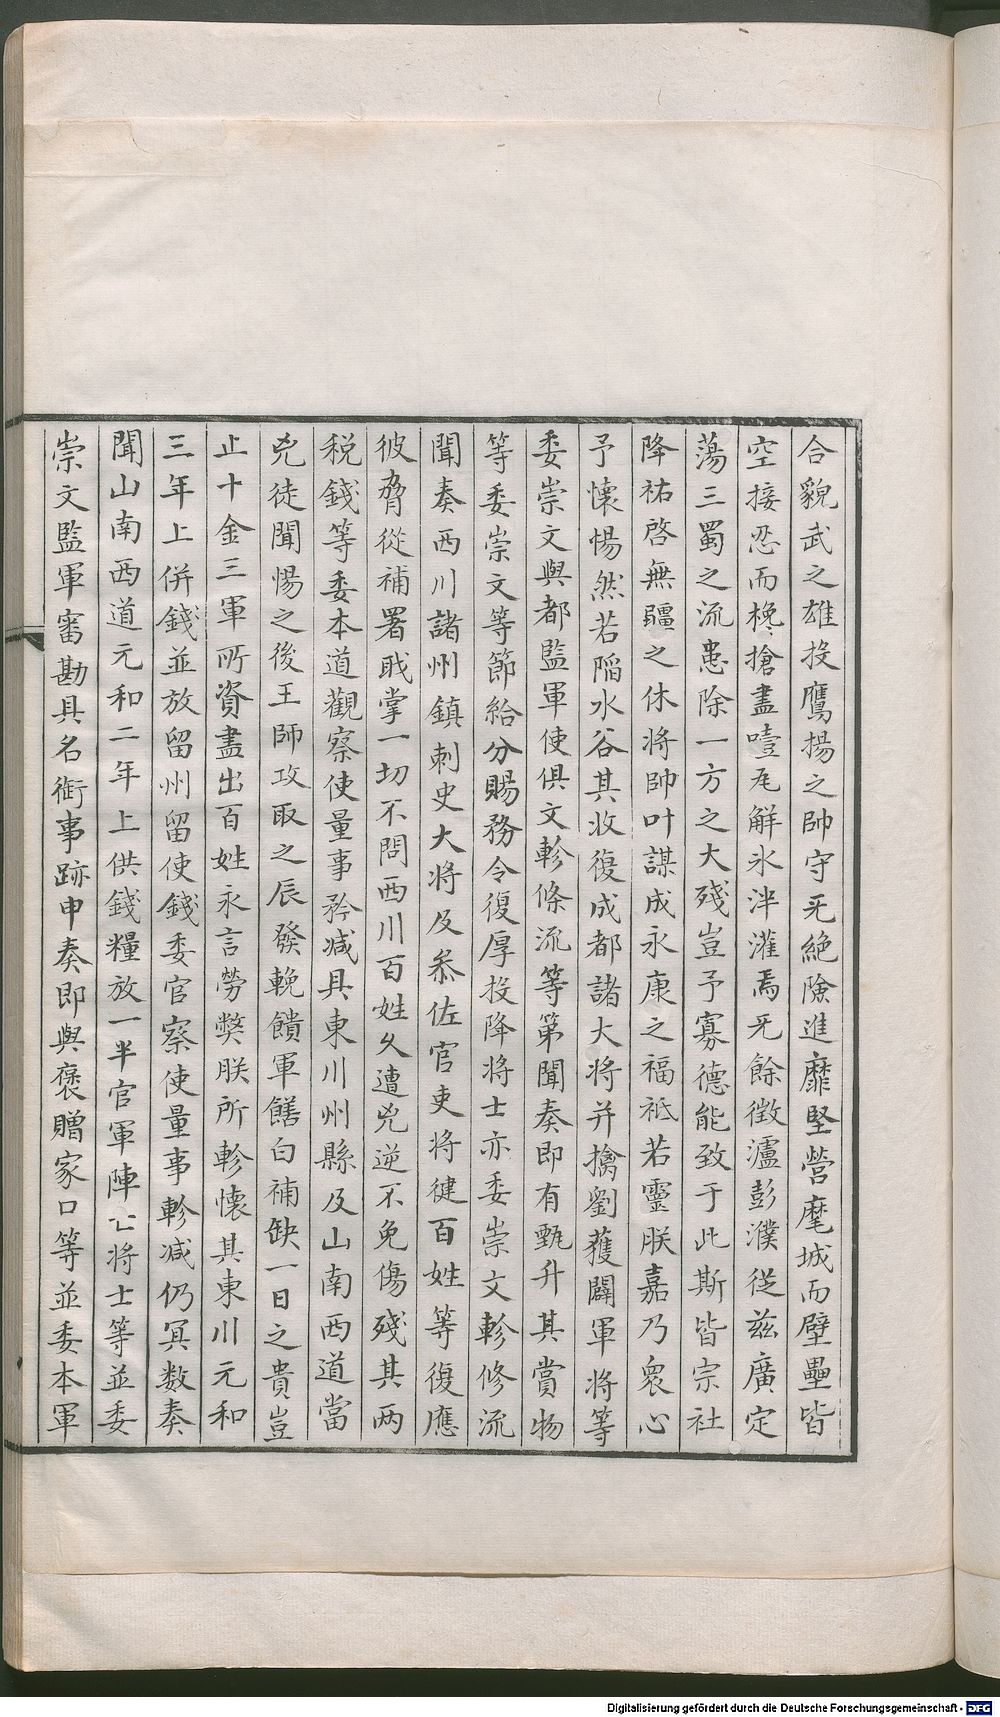 合貌武之雄投鷹揚之帥守旡絶險進靡堅營麾城而壁壘皆
空接忍而欃搶盡噎瓦解氷泮灌焉旡餘徵瀘彭濮從兹廣定
蕩三蜀之流患除一方之大殘豈予寡德能致于此斯皆宗社
降祐啓無疆之休将帥叶謀成永康之福祗若靈朕嘉乃衆心
予懷惕然若陷水谷其收復成都諸大将并擒劉獲闢軍将等
委崇文與都監軍使俱文軫條流等第聞奏即有甄升其賞物
等委崇文等節給分賜務令復厚投降将士亦委崇文軫修流
聞奏西川諸州鎮刺史大将及叅佐官吏将健百姓等復應
彼脅從補署戢掌一切不問西川百姓久遭兇逆不免傷殘其两
税錢等委本道觀察使量事矜减具東川州縣及山南西道當
兇徒聞惕之後王師攻取之辰發輓饋軍饍白補缺一日之貴豈
止十金三軍所資盡出百姓永言勞獘朕所軫懷其東川元和
三年上併錢並放留州留使錢委官察使量事軫减仍冥数奏
聞山南西道元和二年上供錢糧放一半官軍陣亡将士等並委
崇文監軍審勘具名銜事跡申奏即與褒贈家口等並委本軍
Digitalisierung gefördert durch die Deutsche Forschungsgemeinschaft - DFG